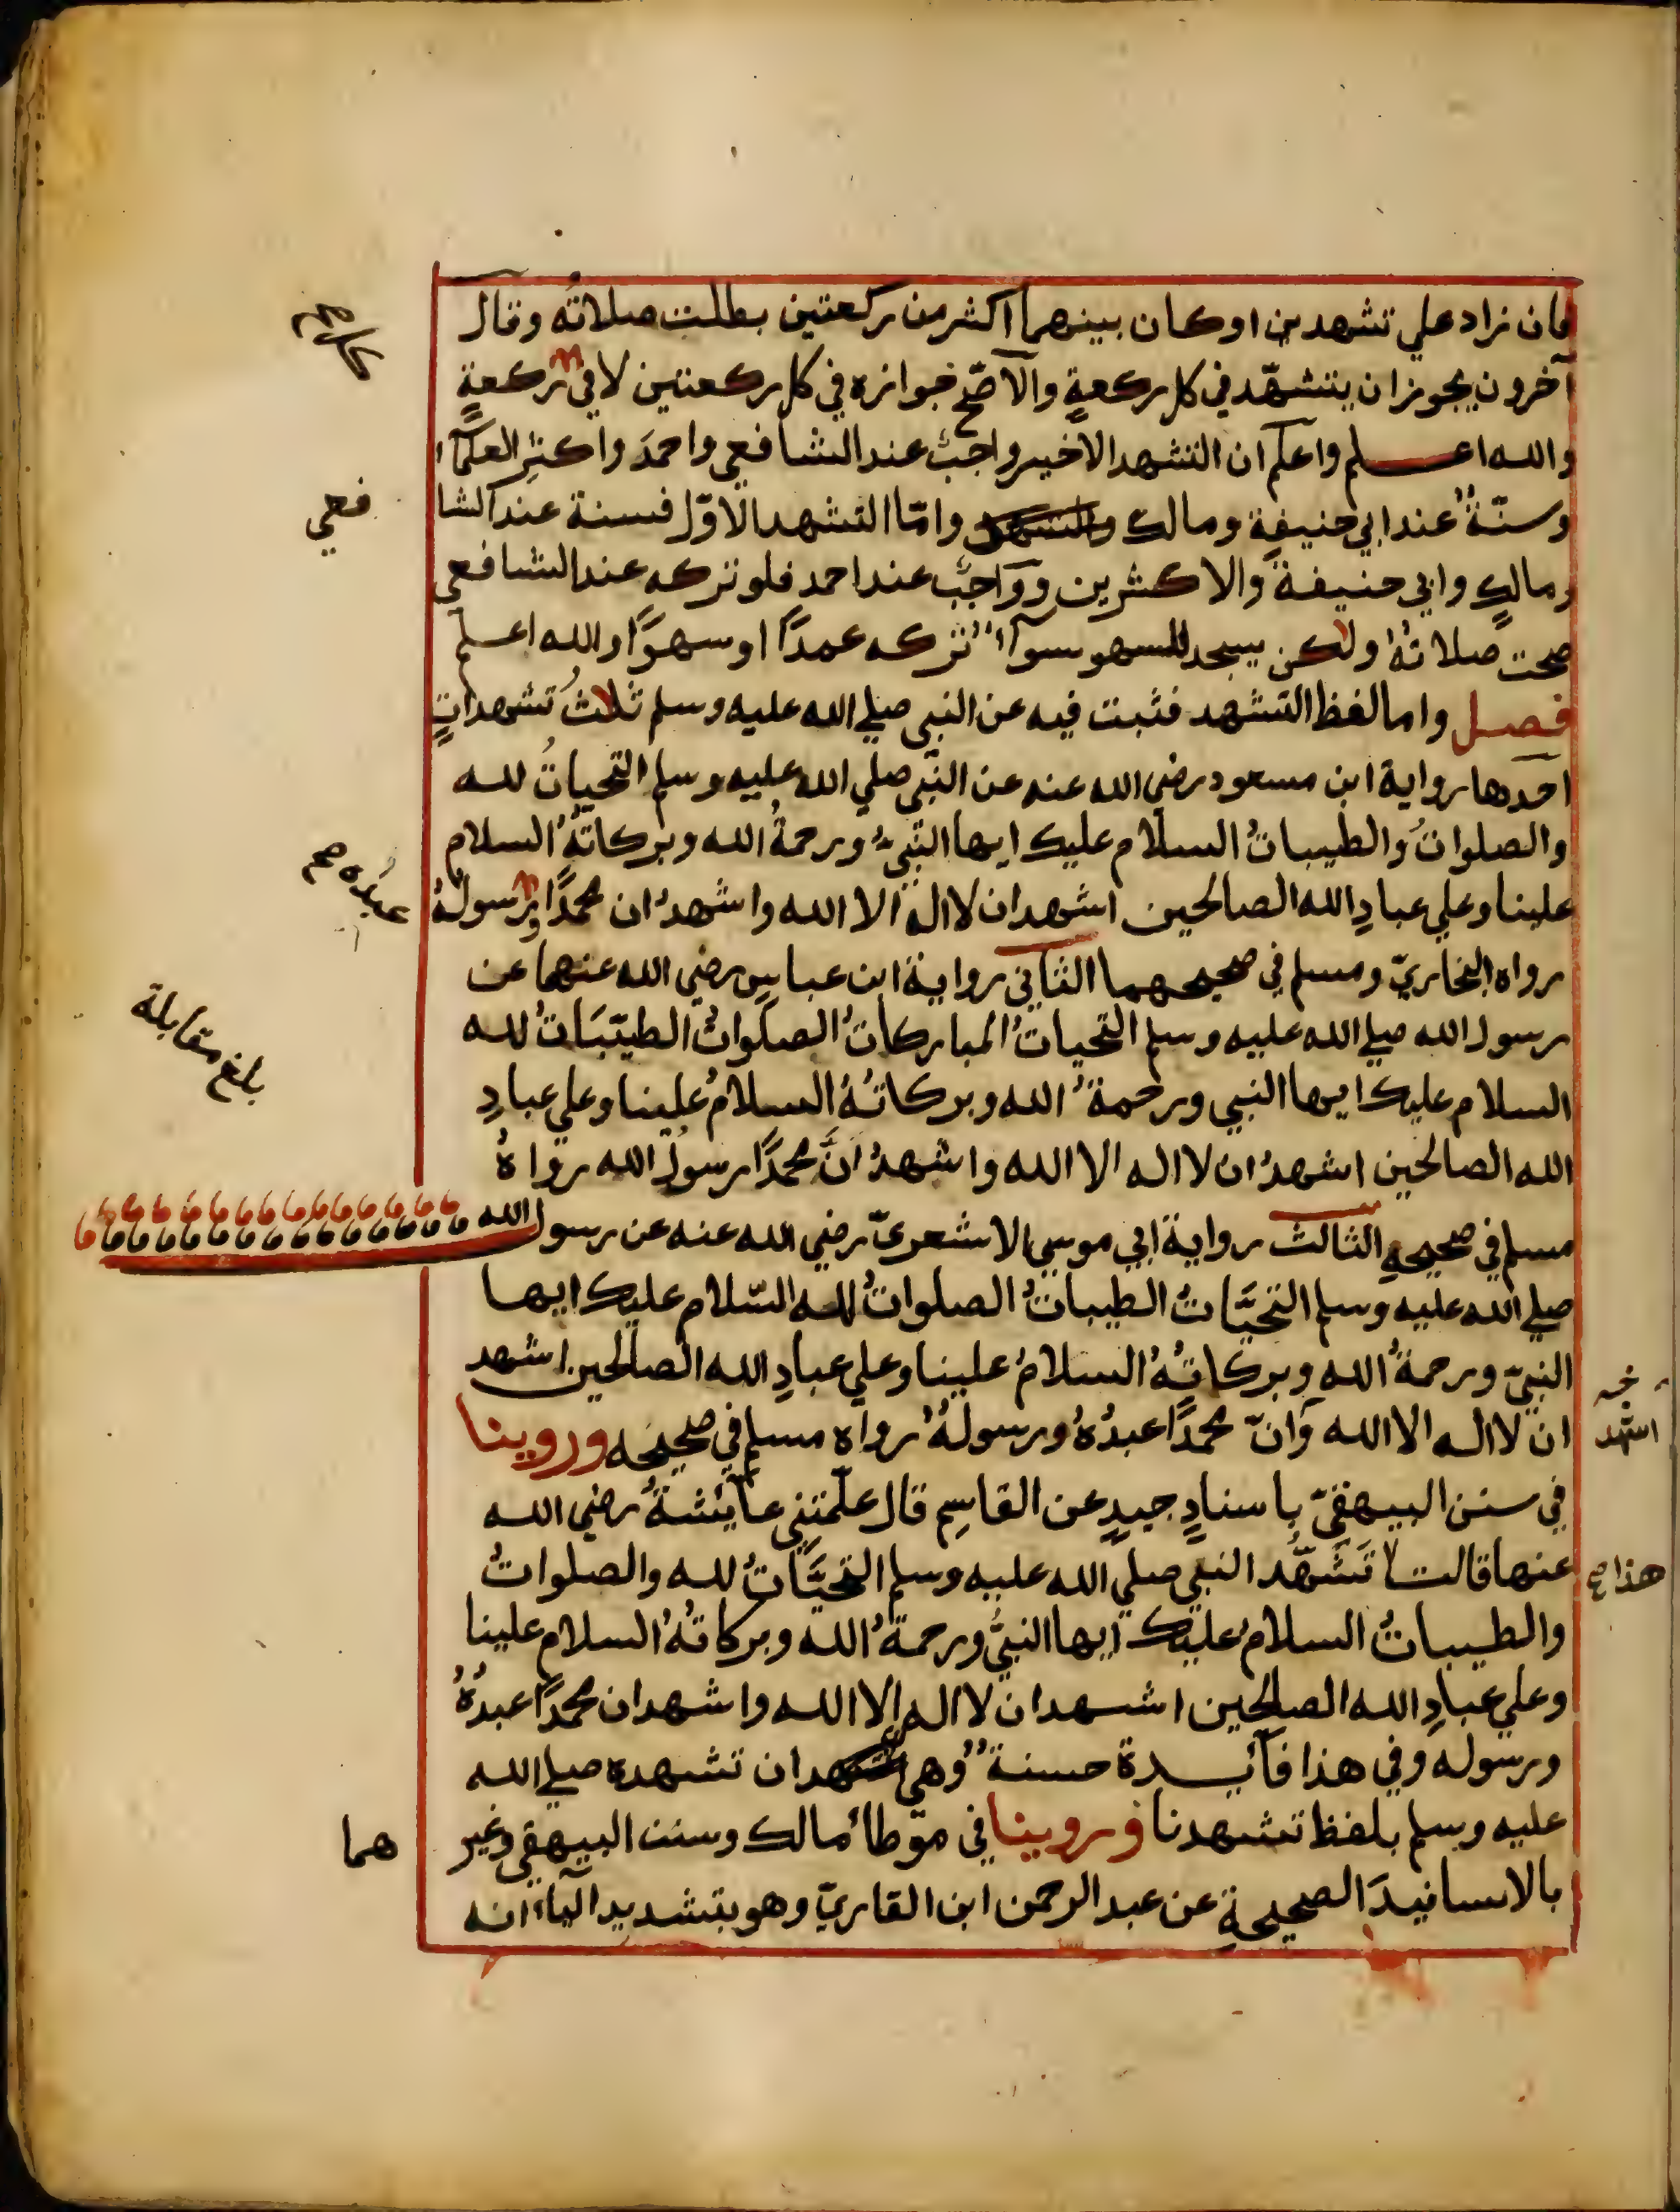 فان زاد علي تشهدين او كان بينهما اكثر من ركعتين بطلت صلاتُه وقال
آخرون يجوز ان يتشهّد في كل ركعةٍ والآصّح جوازه في كل ركعتين لا في ركعةٍ
كل صح
والله اعلم واعلم ان التشهد الاخير واجبٌ عند الشافعي واحمدَ واكثرِ العلمآء
وسنّةٌ عند ابي حنيفة ومالك وامّا التشهد الاوّل فسنة عند الشا
فعي
ومالكٍ وابي حنيفةَ والاكثرين وواجبٌ عند احمد فلو تركه عند الشافعي
صحت صلاتُهُ ولكن يسجد للسهو سوآءٌ تركه عمدًا او سهوًا والله اعلم
فصل واما لفظ التشهد فثبت فيه عن النبي صلي الله عليه وسلم ثلاثُ تشهداتٍ
احدها رواية ابن مسعود رضي الله عنه عن النّبي صلي الله عليه وسلم التحياتُ لله
والصلواتُ والطيباتُ السلام عليك ايها النّبيُّ ورحمةُ الله وبركاتهُ السلام
علينا وعلي عبادِ الله الصالحين اشهد ان لا اله الا الله واشهدُ ان محمدًا ورسولهُ
عبدُه صح
رواه البخاريّ ومسلم في صحيحهما الثاني رواية ابن عباسٍ رضي الله عنهما عن
رسول الله صلي الله عليه وسلم التحياتُ المباركاتُ الصلواتُ الطيّبَاتُ لله
بلغ مقابلة
السلام عليك ايها النبي ورحمةُ الله وبركاتُهُ السلامُ علينا وعلي عبادِ
الله الصالحين اشهدُ ان لا اله الا الله واشهدُ انَّ محمدًا رسولُ الله رواهُ
مسلم في صحيحهِ الثالث رواية ابي موسي الاشعريّ رضي الله عنه عن رسول الله
صلي الله عليه وسلم التحيَّاتُ الطيباتُ الصلواتُ لله السّلام عليك ايها
النبيّ ورحمةُ اللهِ وبركاتُهُ السلامُ علينا وعلي عبادِ الله الصالحين اشهد
ان لا اله الا الله وَانّ محمدًا عبدُهُ ورسولهُ رواه مسلم في صحيحه وروينا
اشهد
في سنن البيهقيّ باسنادٍ جيدٍ عن القاسِم قال علّمتني عآئشةُ رضي الله
عنها قالت تَشَهُّد النبي صلي الله عليه وسلم التحيَّاتُ لله والصلواتُ
هذا صح
والطيباتُ السلامُ عليك ايها النبيُّ ورحمةُ الله وبركاتُهُ السلام علينا
وعلي عبادِ الله الصالحين اشهد ان لا اله الا الله واشهد ان محمدًا عبدُهُ
ورسوله وفي هذا فآئدة حسنةٌ وهي ان تشهده صلي الله
عليه وسلم بلفظ تشهدنا وروينا في موّطا مالك وسنن البيهقي وغير
هما
بالاسانيدَ الصحيحةِ عن عبد الرحمن ابن القاريّ وهو بتشديد اليآء انه